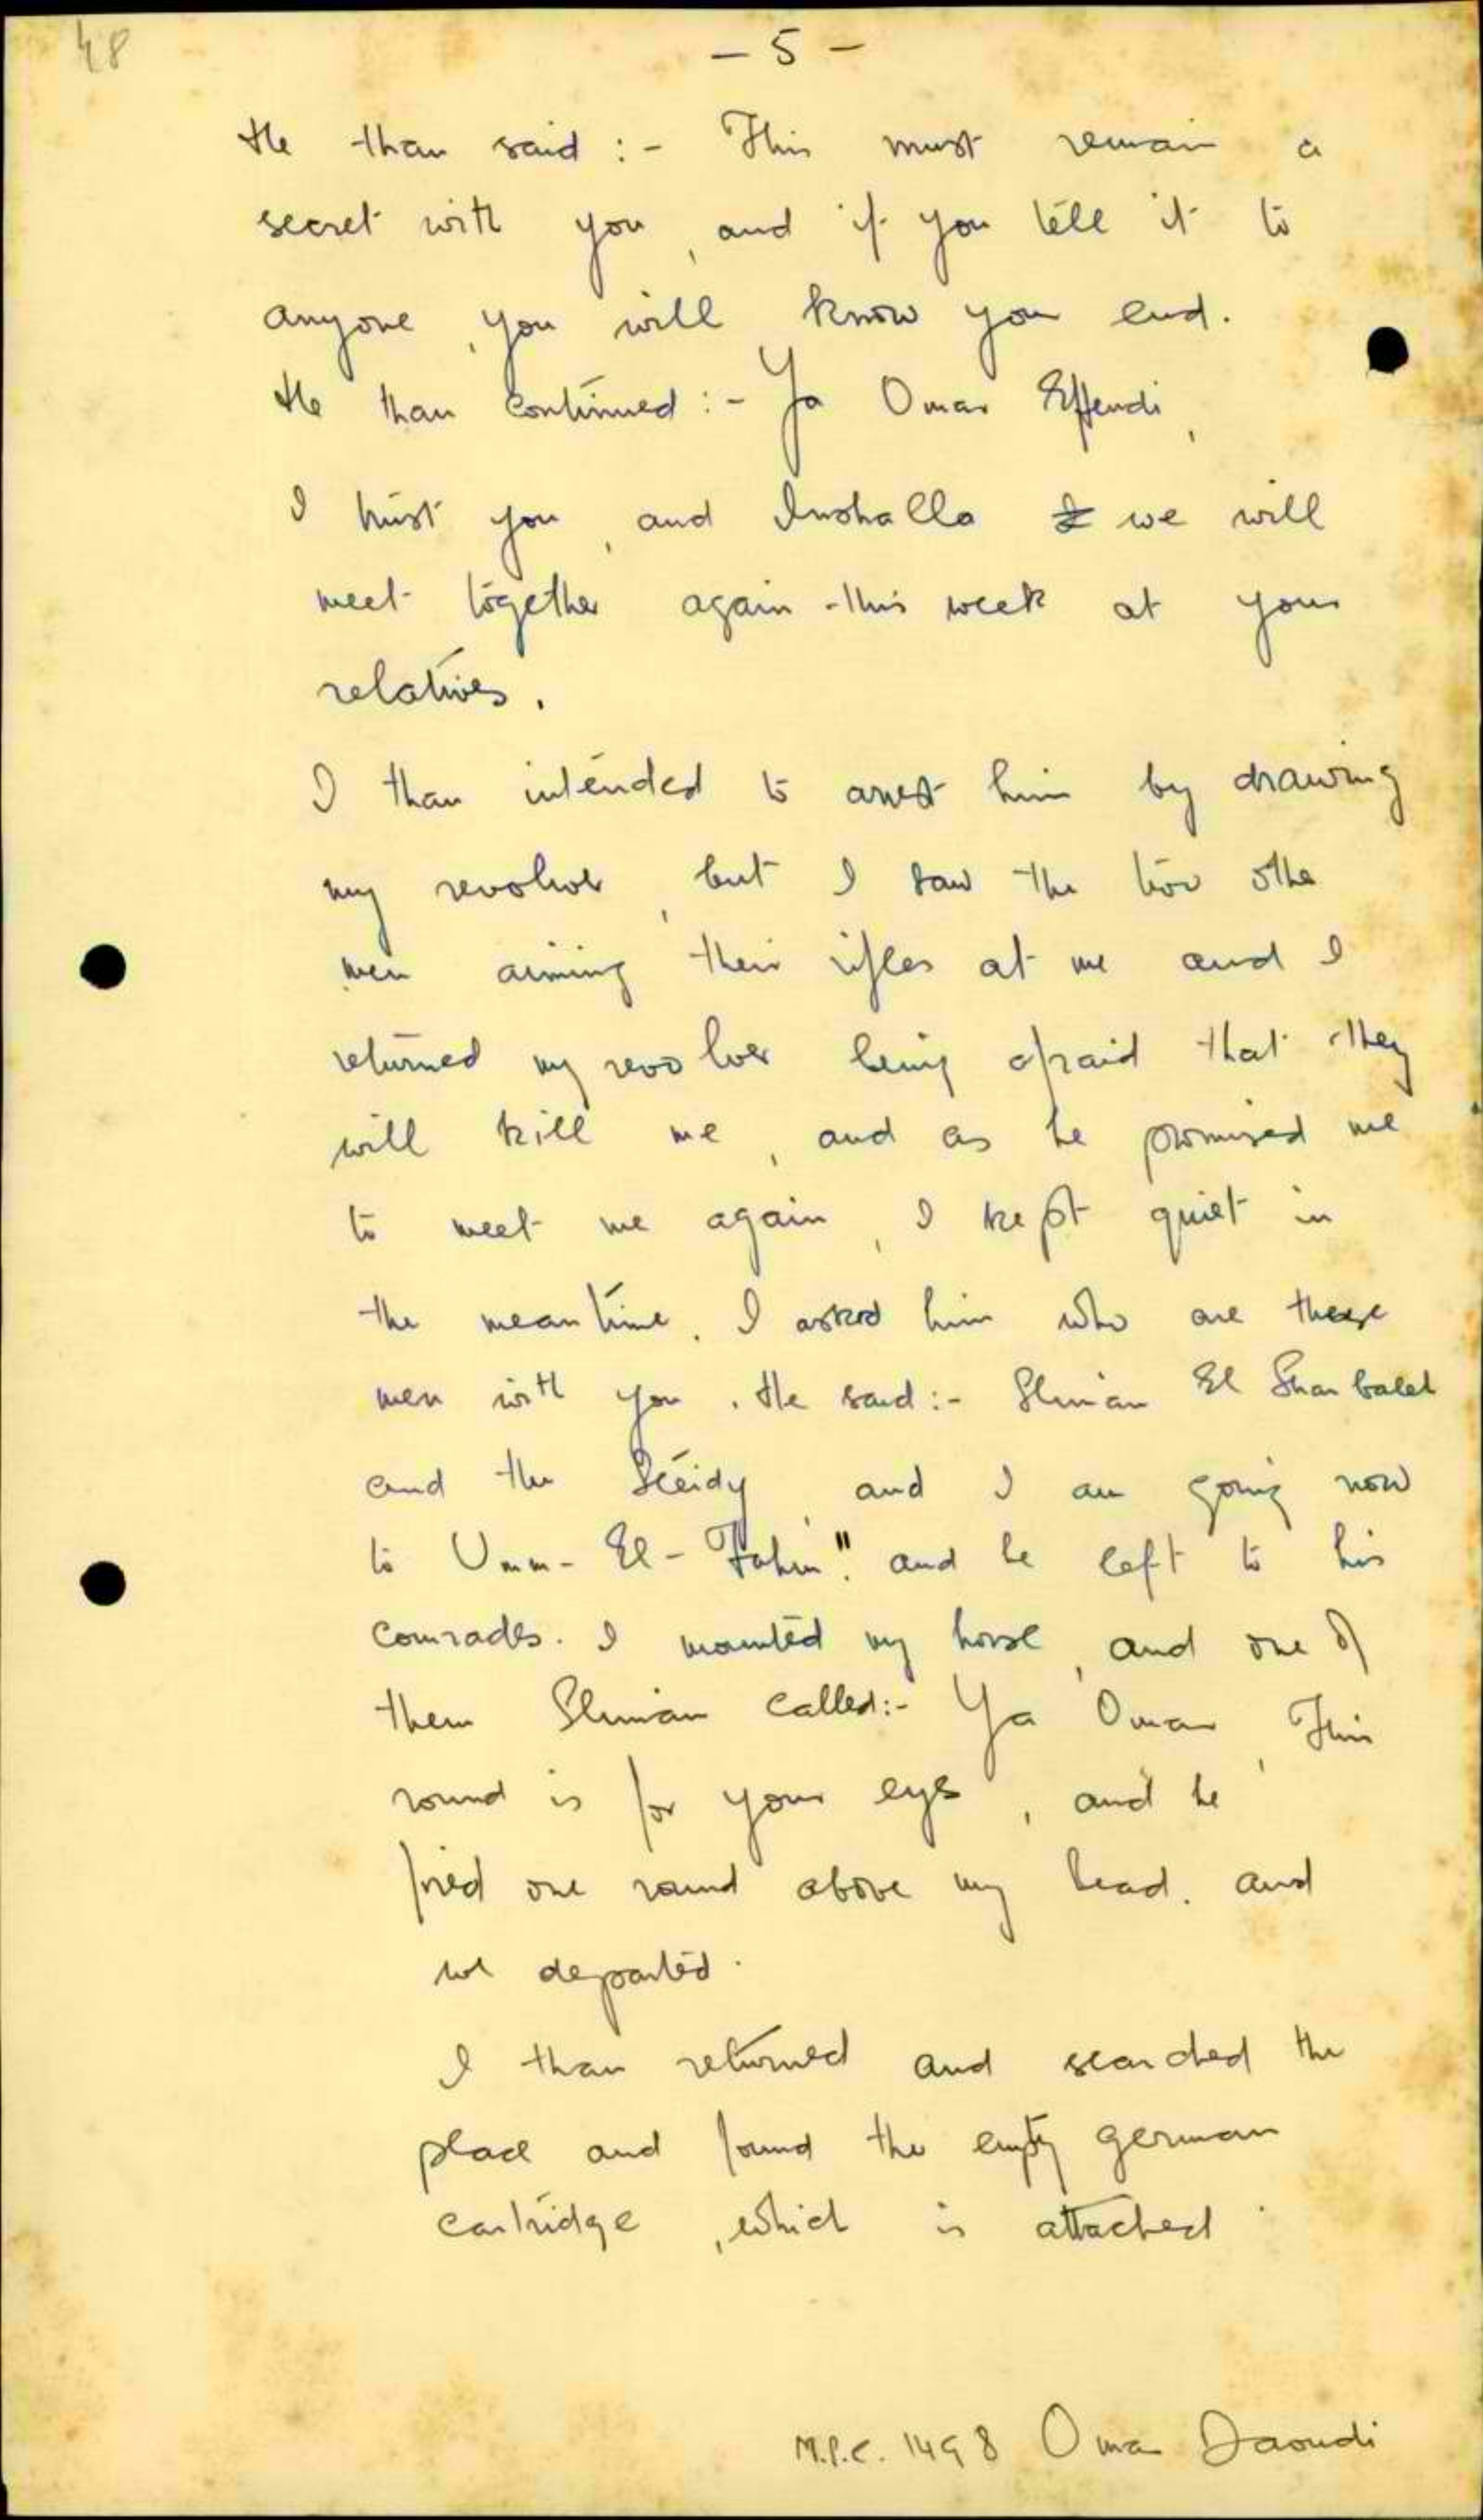 48
- 5 -
He than said :- This must remain a
secret with you, and if you tell it to
anyone, you will know you end.
He than continued :- Ya Omar Effendi,
I trust you, and Inshalla we will
meet together again this week at your
relatives.
I than intended to arrest him by drawing
my revolver, but I saw the two othe
men aiming their rifles at me and I
returned my revolver being afraid that they
will kill me, and as he promised me
to meet me again, I kept quiet in
the meantime. I asked him who are these
men with you. He said :- Sliman El
and the and I am going now
to Umm-El-Fahm". and he left to his
comrades. I mounted my horse, and one of
them Sliman called:- Ya Omar, This
round is for your eyes, and he
fired one round above my head. and
we departed.
I than returned and searched the
place and found the empty german
cartridge, which is attached.
M.P.C. 1498 Omar Daoudi